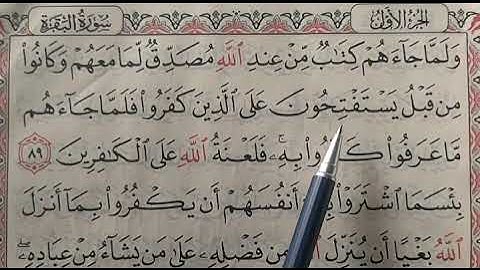 الجُزْءُ الأَوَّلُ سُورَةُ البَقَرَةِ
وَلَمَّا جَآءَهُمْ كِتَٰبٌ مِّنْ عِندِ ٱللَّهِ مُصَدِّقٌ لِّمَا مَعَهُمْ وَكَانُوا۟
مِن قَبْلُ يَسْتَفْتِحُونَ عَلَى ٱلَّذِينَ كَفَرُوا۟ فَلَمَّا جَآءَهُم
مَّا عَرَفُوا۟ بِهِۦ ۚ فَلَعْنَةُ ٱللَّهِ عَلَى ٱلْكَٰفِرِينَ ٨٩
بِئْسَمَا ٱشْتَرَوْا۟ أَنفُسَهُمْ أَن يَكْفُرُوا۟ بِمَآ أَنزَلَ
ٱللَّهُ بَغْيًا أَن يُنَزِّلَ فَضْلِهِۦ عَلَىٰ مَن يَشَآءُ مِنْ عِبَادِهِۦ ۖ